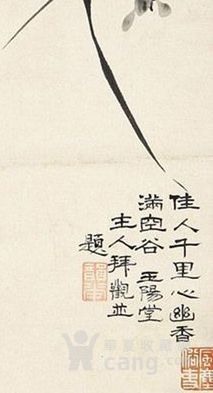 佳人千里心幽香
滿空谷 玉陽堂
主人拜觀並
題
華夏收藏网
cang.com